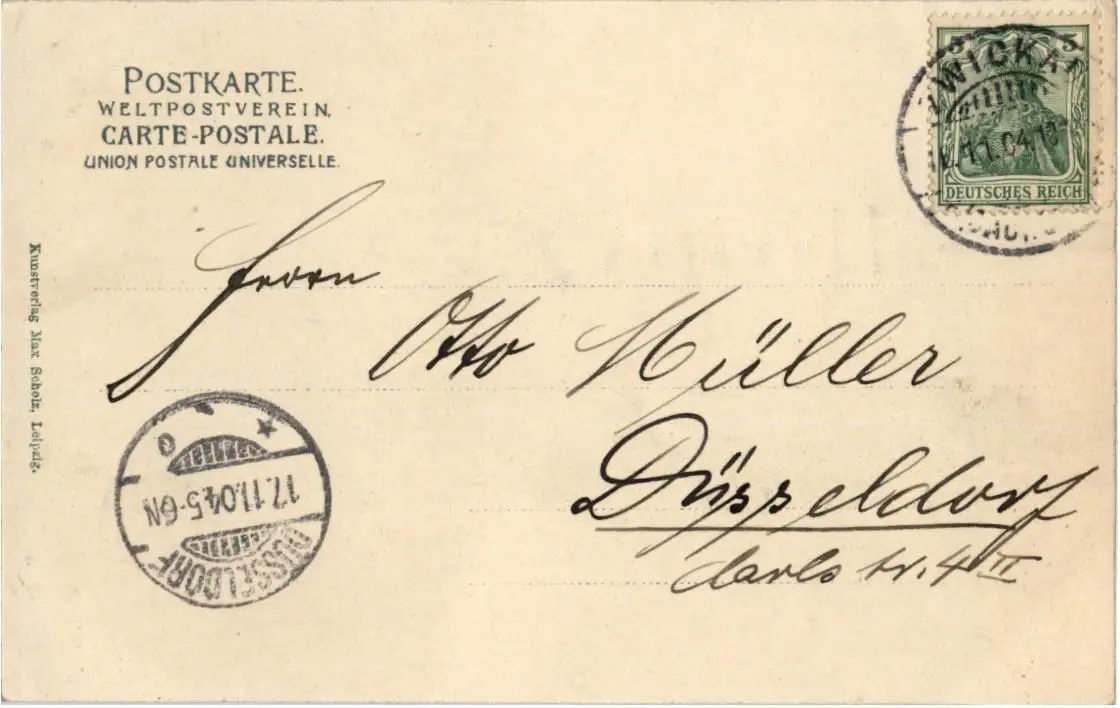 POSTKARTE.
WELTPOSTVEREIN.
CARTE-POSTALE.
UNION POSTALE UNIVERSELLE.
5 5
DEUTSCHES REICH
ZWICKAU
11.04.10
Kunstverlag Max Scholz, Leipzig.
Herrn
Otto Müller
Düsseldorf
Carlsstr. 4 II
DÜSSELDORF
17.11.04.5-6N